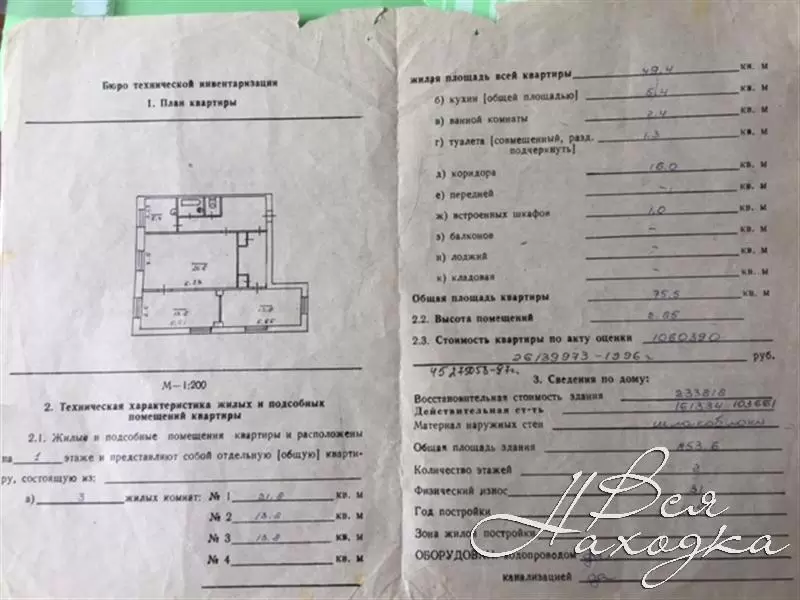 Бюро технической инвентаризации
1. План квартиры
М—1:200
2. Техническая характеристика жилых и подсобных
помещений квартиры
2.1. Жилые и подсобные помещения квартиры и расположены
на 1 этаже и представляют собой отдельную [общую] кварти-
ру, состоящую из:
а) 3 жилых комнат: № 1 21.8 кв. м
№ 2 13.8 кв. м
№ 3 13.8 кв. м
№ 4 кв. м
жилая площадь всей квартиры 49,4 кв. м
б) кухни [общей площадью] 5,4 кв. м
в) ванной комнаты 2.4 кв. м
г) туалета [совмещенный, разд. 1.3 кв. м
подчеркнуть]
д) коридора 16.0 кв. м
е) передней - кв. м
ж) встроенных шкафов 1.0 кв. м
з) балконов - кв. м
и) лоджий - кв. м
к) кладовая - кв. м
Общая площадь квартиры 75.5 кв. м
2.2. Высота помещений 2.85
2.3. Стоимость квартиры по акту оценки 1060390
26139973-1996г руб.
45279053-97г.
3. Сведения по дому:
Восстановительная стоимость здания 233818
Действительная ст-ть 161334 103661
Материал наружных стен шлакоблоки
Общая площадь здания 853.6
Количество этажей 2
Физический износ 31
Год постройки
Зона жилой постройки
ОБОРУДОВАН водопроводом да
канализацией да
Вся
Находка